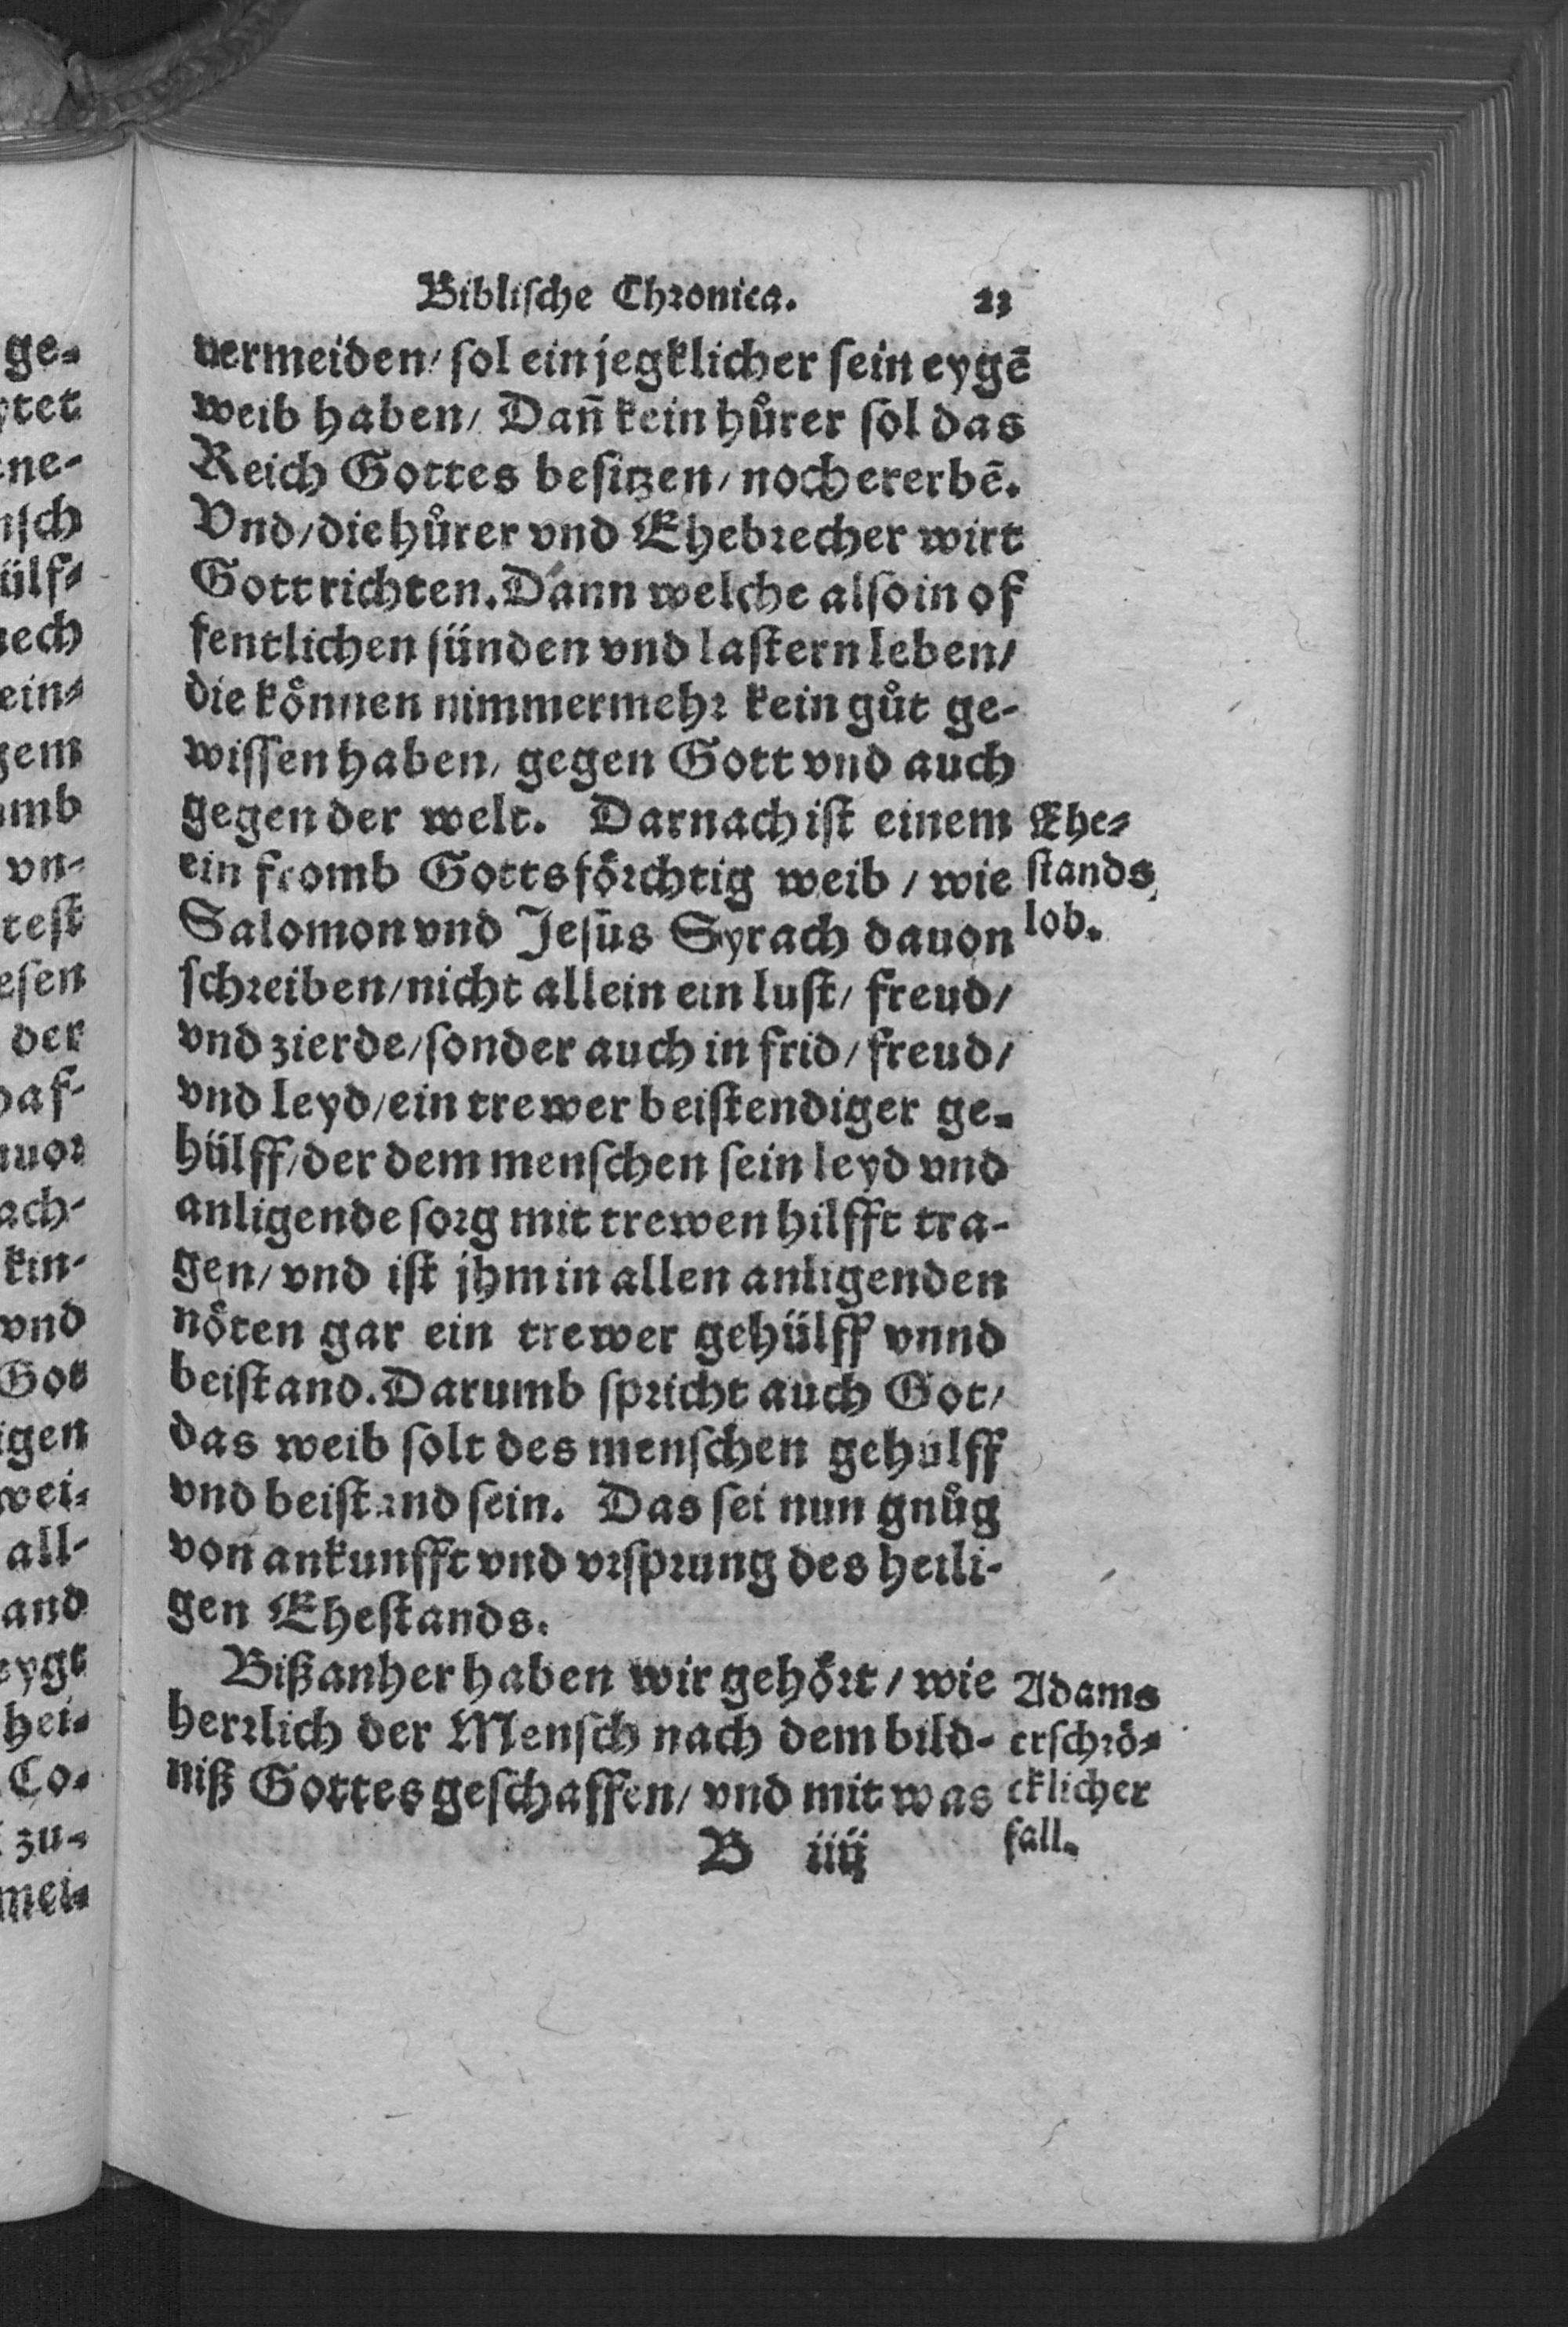 Biblische Chronica. 23
vermeiden/ sol ein jegklicher sein eygē
weib haben/ Dañ kein hůrer sol das
Reich Gottes besitzen/ noch ererbē.
Vnd/ die hůrer vnd Ehebrecher wirt
Gott richten. Dann welche also in of
fentlichen sünden vnd lastern leben/
die koͤnnen nimmermehr kein gůt ge-
wissen haben/ gegen Gott vnd auch
gegen der welt. Darnach ist einem
ein fromb Gottsfoͤrchtig weib / wie
Salomon vnd Jesus Syrach dauon
schreiben/ nicht allein ein lust/ freud/
vnd zierde/ sonder auch in frid/ freud/
vnd leyd/ ein trewer beistendiger ge-
hülff/ der dem menschen sein leyd vnd
anligende sorg mit trewen hilfft tra-
gen/ vnd ist jhm in allen anligenden
noͤten gar ein trewer gehülff vnnd
beistand. Darumb spricht auch Got/
das weib solt des menschen gehülff
vnd beistand sein. Das sei nun gnůg
von ankunfft vnd vrsprung des heili-
gen Ehestands.
Ehe-
stands
lob.
Biß anher haben wir gehoͤrt / wie
herrlich der Mensch nach dem bild-
niß Gottes geschaffen/ vnd mit was
Adams
erschroͤ-
cklicher
fall.
B iiij
ge-
ne-
ülf-
ein-
vn-
der
ach-
kin-
vnd
wei-
all-
hei-
Co-
zu-
mei-